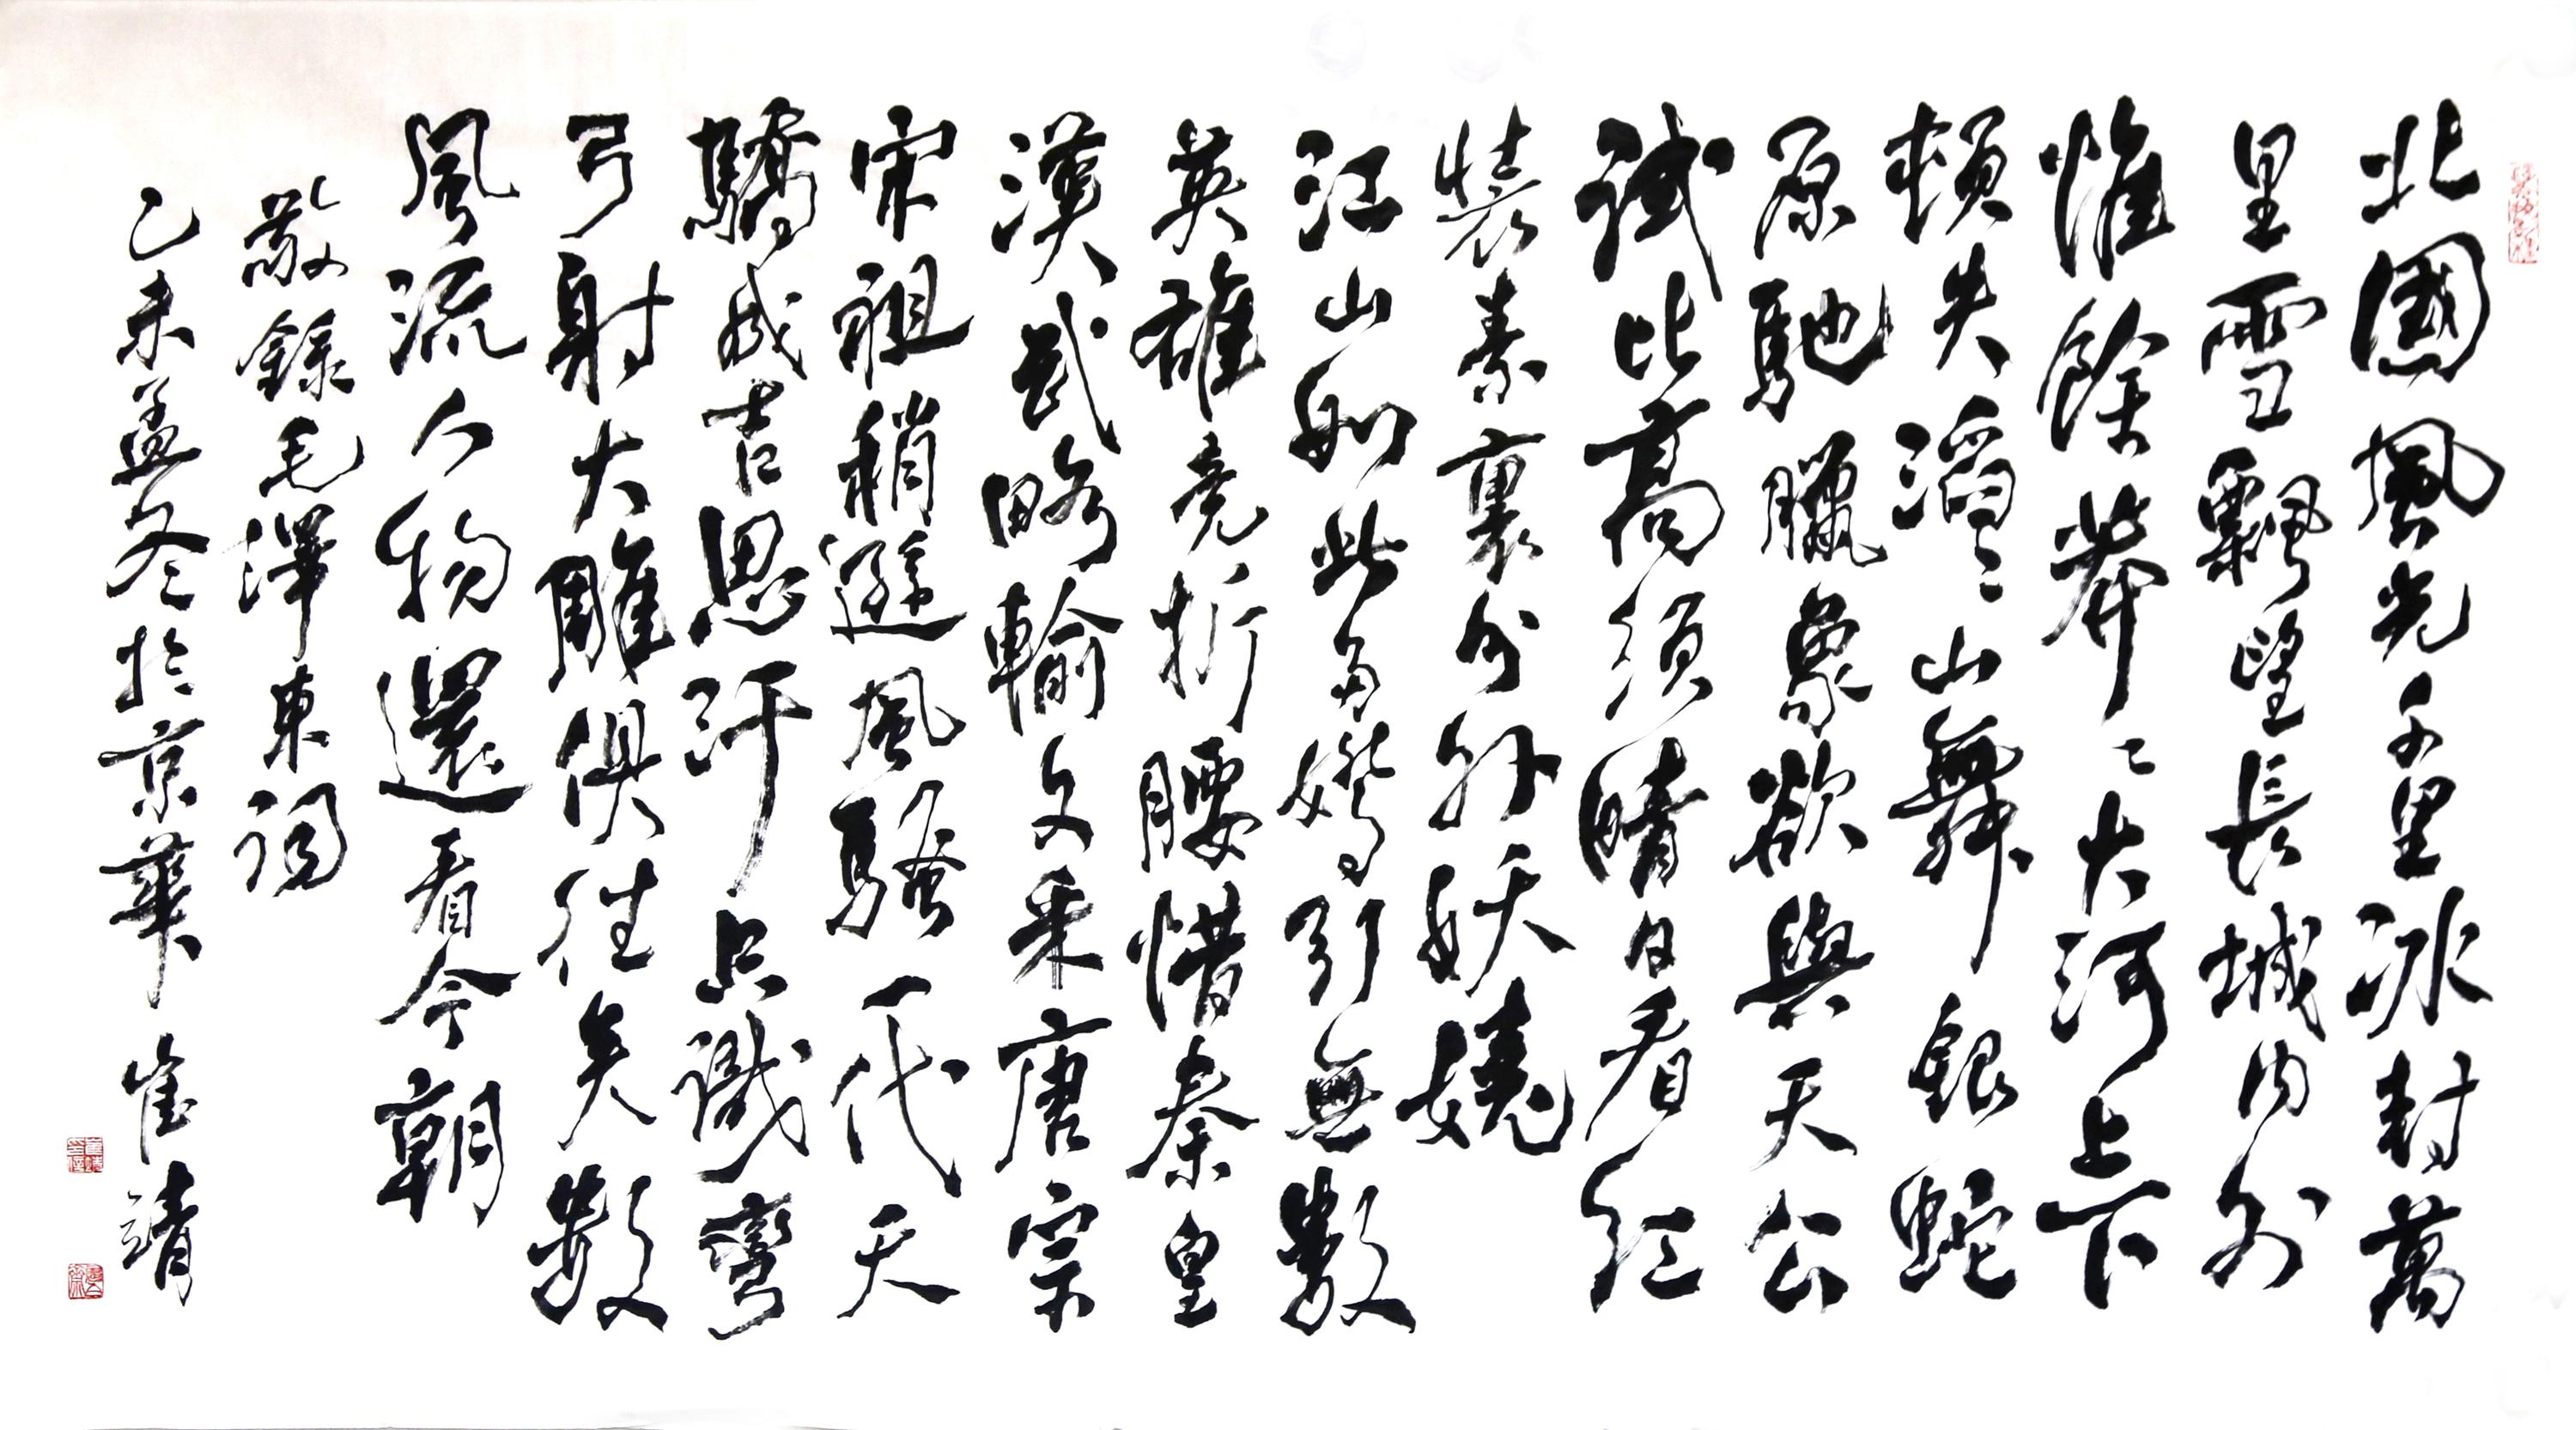 北國風光千里冰封萬
里雪飄望長城內外
惟餘莽〻大河上下
頓失滔〻山舞銀蛇
原馳臘象欲與天公
試比高須晴日看紅
裝素裹分外妖嬈
江山如此多嬌引無數
英雄竞折腰惜秦皇
漢武略輸文采唐宗
宋祖稍遜風騷一代天
驕成吉思汗只識彎
弓射大雕俱往矣數
風流人物還看今朝
敬錄毛澤東詞
乙未孟冬於京華 崔靖